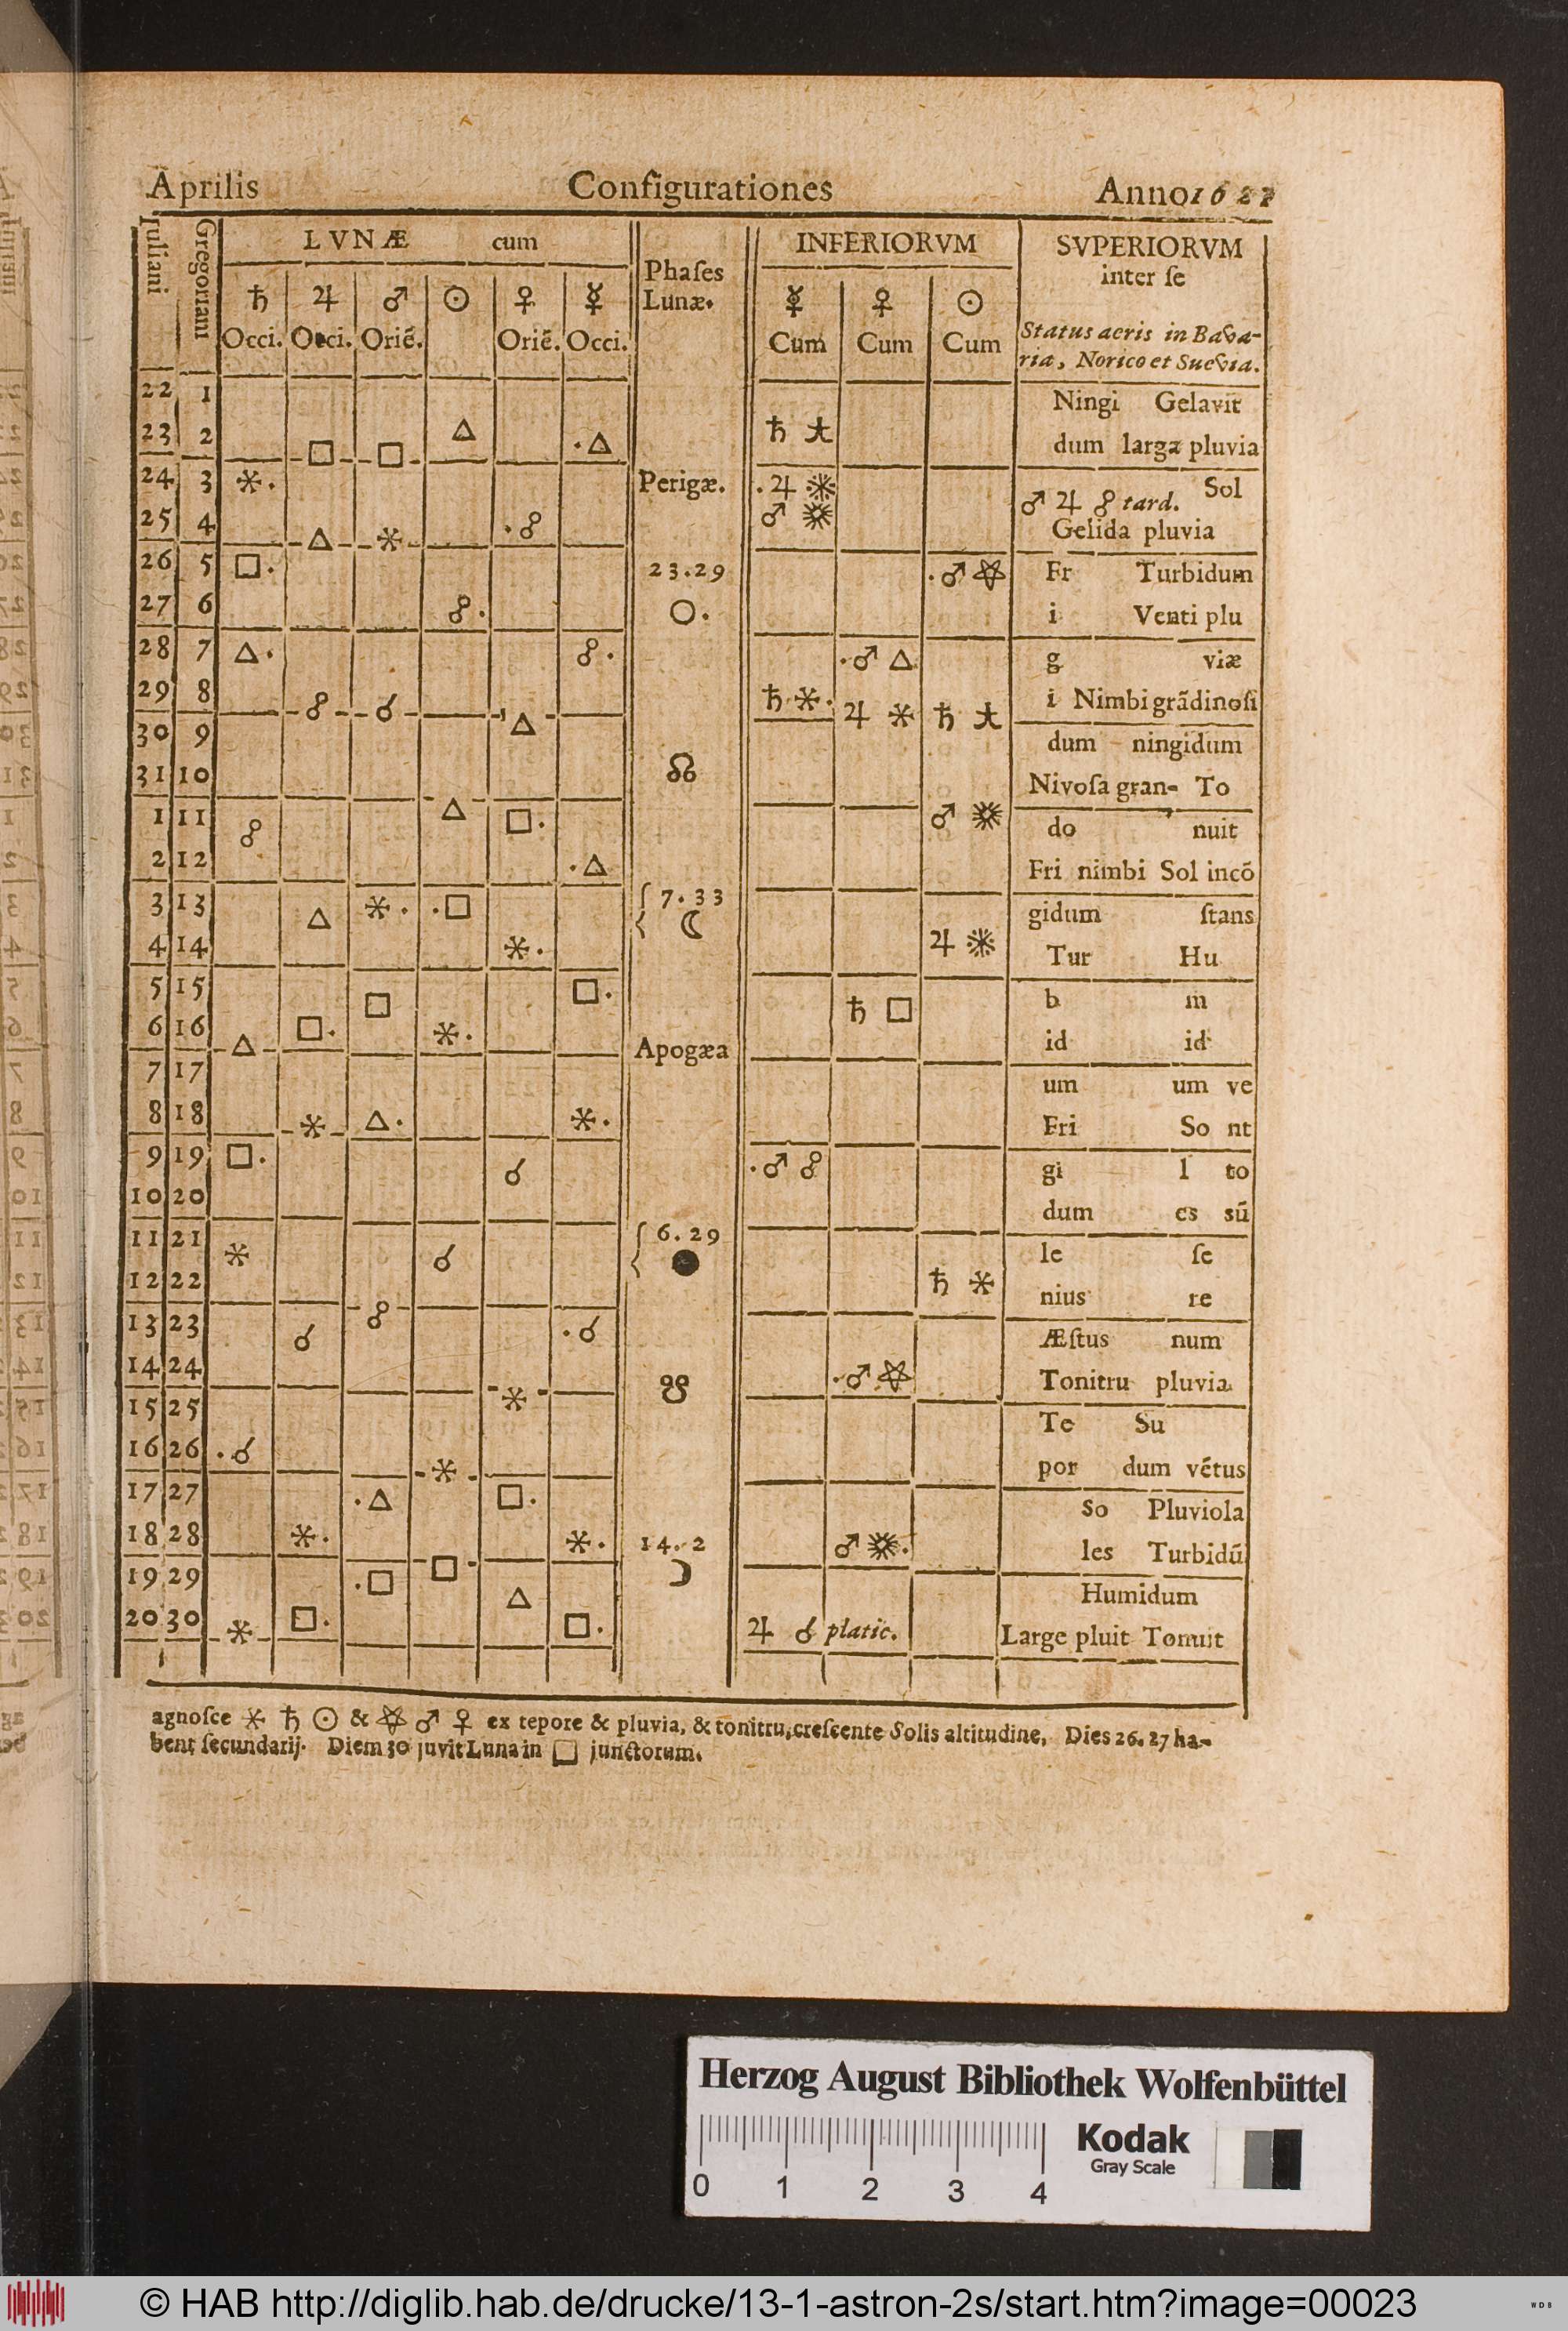 Aprilis Configurationes Anno 1621
Iuliani Gregoriani LVNÆ cum Phaſes Lunæ. INFERIORVM SVPERIORVM
inter ſe
♄ ♃ ♂ ☉ ♀ ☿ ☿ ♀ ☉
Occi. Occi. Oriē. Oriē. Occi. Cum Cum Cum
Status aeris in Bava-
ria, Norico et Suevia.
22 1 Ningi Gelavit
23 2 □ □ △ .△ ♄ dum larga pluvia
24 3 ⚹. Perigæ. .♃ Sol
♂ ♃ ☍ tard.
25 4 △ ⚹ .☍ ♂ Gelida pluvia
26 5 □. 23.29 .♂ Fr Turbidum
27 6 ☍. ○. i Venti plu
28 7 △. ☍. .♂ △ g viæ
29 8 ☍ ☌ △ ♄ ⚹. ♃ ⚹ ♄ i Nimbi grādinoſi
30 9 dum ningidum
31 10 ☊ Nivoſa gran- To
1 11 ☍ △ □. ♂ do nuit
2 12 .△ Fri nimbi Sol incō
3 13 △ ⚹. .□ { 7.33 gidum ſtans
4 14 ⚹. ☾ ♃ Tur Hu
5 15 □ □. ♄ □ b m
6 16 △ □. ⚹. Apogæa id id
7 17 um um ve
8 18 ⚹ △. ⚹. Fri So nt
9 19 □. ☌ .♂ ☍ gi l to
10 20 dum es sū
11 21 ⚹ ☌ { 6.29 le ſe
12 22 ● ♄ ⚹ nius re
13 23 ☌ ☍ .☌ Æſtus num
14 24 ☋ .♂ Tonitru pluvia
15 25 ⚹ Te Su
16 26 .☌ ⚹ por dum vētus
17 27 .△ □. So Pluviola
18 28 ⚹. ⚹. 14.2 ♂ . les Turbidū
19 29 .□ □ △ ☽ Humidum
20 30 ⚹ □. □. ♃ ☌ platic. Large pluit Tonuit
agnoſce ⚹ ♄ ☉ & ♂ ♀ ex tepore & pluvia, & tonitru, creſcente Solis altitudine, Dies 26. 27 ha-
bent ſecundarij. Diem 30 juvit Luna in □ junctorum.
Herzog August Bibliothek Wolfenbüttel
Kodak
Gray Scale
0 1 2 3 4
© HAB http://diglib.hab.de/drucke/13-1-astron-2s/start.htm?image=00023
WDB